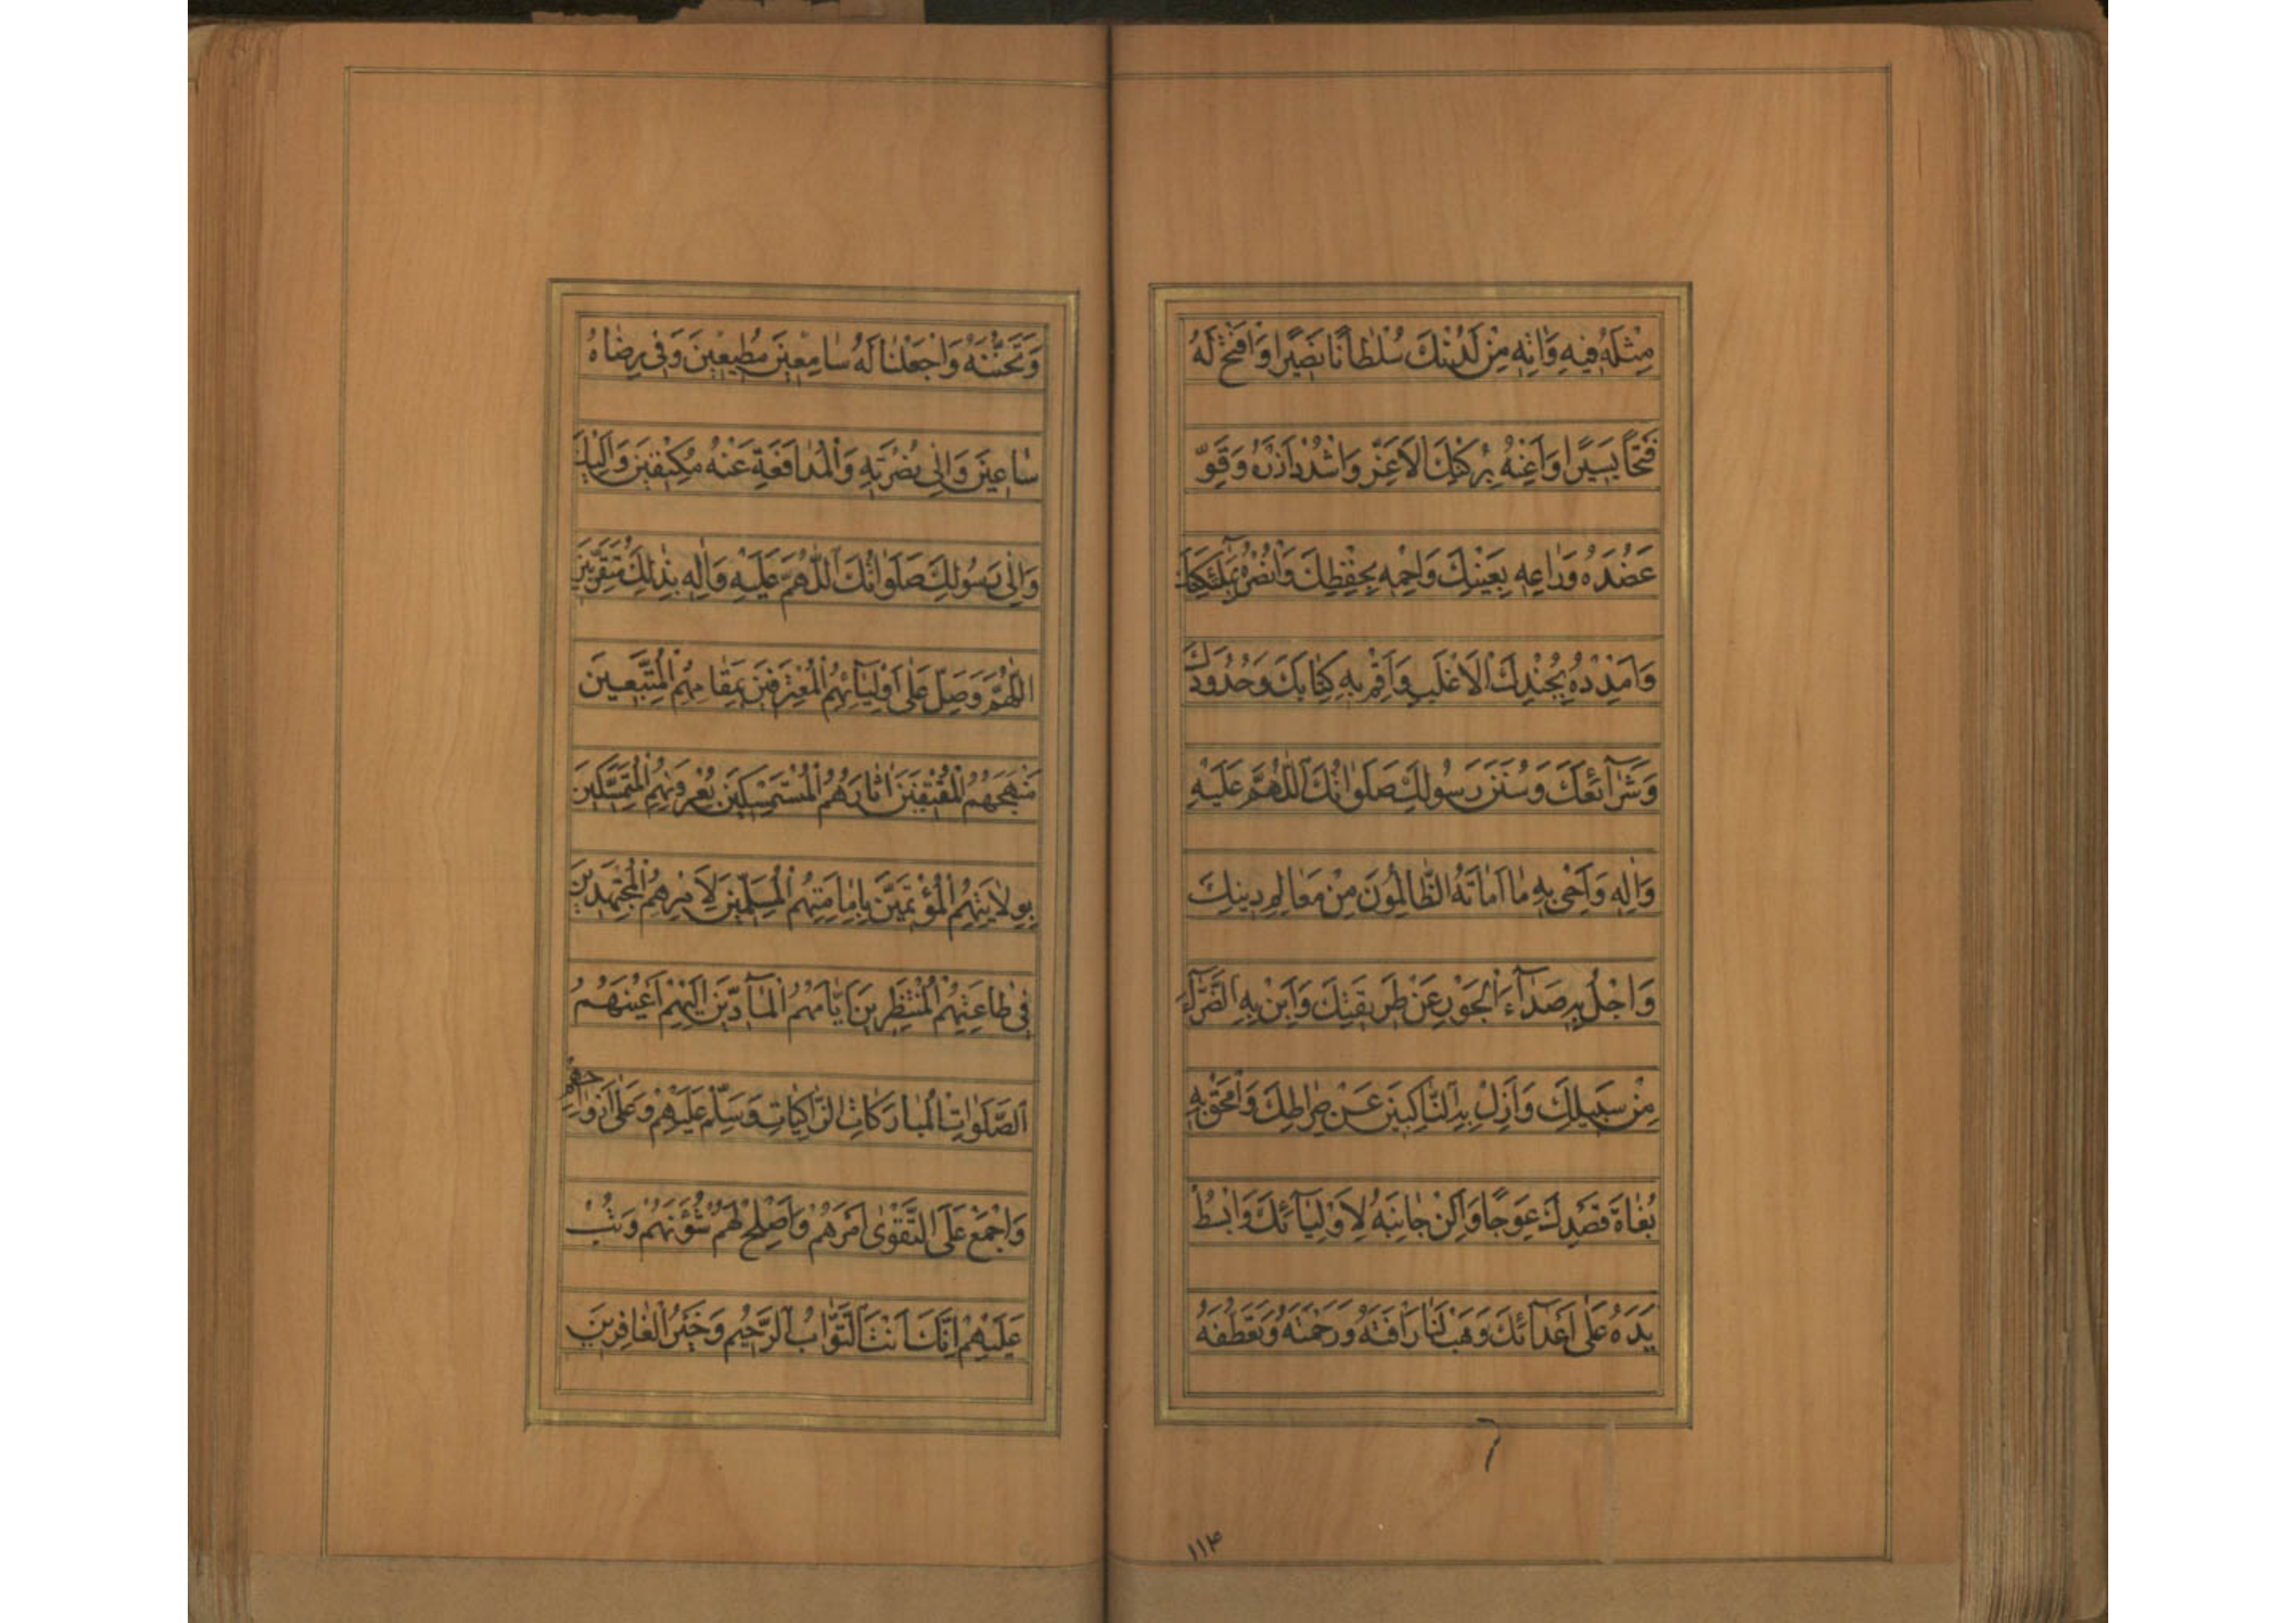 مِثْلَهُ فيهِ وَاٰتِهِ مِنْ لَدُنْكَ سُلْطانًا نَصيرًا وَافْتَحْ لَهُ
فَتْحًا يَسيرًا وَاَعِنْهُ بِرُكْنِكَ الْاَعَزِّ وَاشْدُدْ اَزْرَهُ وَقَوِّ
عَضُدَهُ وَراعِهِ بِعَيْنِكَ وَاحْمِهِ بِحِفْظِكَ وَانْصُرْهُ بِمَلٰٓئِكَتِكَ
وَامْدُدْهُ بِجُنْدِكَ الْاَغْلَبِ وَاَقِمْ بِهِ كِتابَكَ وَحُدُودَكَ
وَشَرآئِعَكَ وَسُنَنَ رَسُولِكَ صَلَواتُكَ اللّٰهُمَّ عَلَيْهِ
وَاٰلِهِ وَاَحْيِ بِهِ ما اَماتَهُ الظّالِمُونَ مِنْ مَعالِمِ دينِكَ
وَاجْلُ بِهِ صَدآءَ الْجَوْرِ عَنْ طَريقَتِكَ وَاَبِنْ بِهِ الضَّرّآءَ
مِنْ سَبيلِكَ وَاَزِلْ بِهِ النّاكِبينَ عَنْ صِراطِكَ وَامْحَقْ بِهِ
بُغاةَ قَصْدِكَ عِوَجًا وَاَلِنْ جانِبَهُ لِاَوْلِيآئِكَ وَابْسُطْ
يَدَهُ عَلٰى اَعْدآئِكَ وَهَبْ لَنا رَاْفَتَهُ وَرَحْمَتَهُ وَتَعَطُّفَهُ
۱۱۴
وَتَحَنُّنَهُ وَاجْعَلْنا لَهُ سامِعينَ مُطيعينَ وَفي رِضاهُ
ساعينَ وَاِلٰى نُصْرَتِهِ وَالْمُدافَعَةِ عَنْهُ مُكْنِفينَ وَاِلَيْكَ
وَاِلٰى رَسُولِكَ صَلَواتُكَ اللّٰهُمَّ عَلَيْهِ وَاٰلِهِ بِذٰلِكَ مُتَقَرِّبينَ
اللّٰهُمَّ وَصَلِّ عَلٰى اَوْلِيآئِهِمُ الْمُعْتَرِفينَ بِمَقامِهِمُ الْمُتَّبِعينَ
مَنْهَجَهُمُ الْمُقْتَفينَ اٰثارَهُمُ الْمُسْتَمْسِكينَ بِعُرْوَتِهِمُ الْمُتَمَسِّكينَ
بِوِلايَتِهِمُ الْمُؤْتَمّينَ بِاِمامَتِهِمُ الْمُسَلِّمينَ لِاَمْرِهِمُ الْمُجْتَهِدينَ
في طاعَتِهِمُ الْمُنْتَظِرينَ اَيّامَهُمُ الْمآدّينَ اِلَيْهِمْ اَعْيُنَهُمُ
الصَّلَواتِ الْمُبارَكاتِ الزّاكِياتِ وَسَلِّمْ عَلَيْهِمْ وَعَلٰى اَرْواحِهِمْ
وَاجْمَعْ عَلَى التَّقْوٰى اَمْرَهُمْ وَاَصْلِحْ لَهُمْ شُؤُنَهُمْ وَتُبْ
عَلَيْهِمْ اِنَّكَ اَنْتَ التَّوّابُ الرَّحيمُ وَخَيْرُ الْغافِرينَ